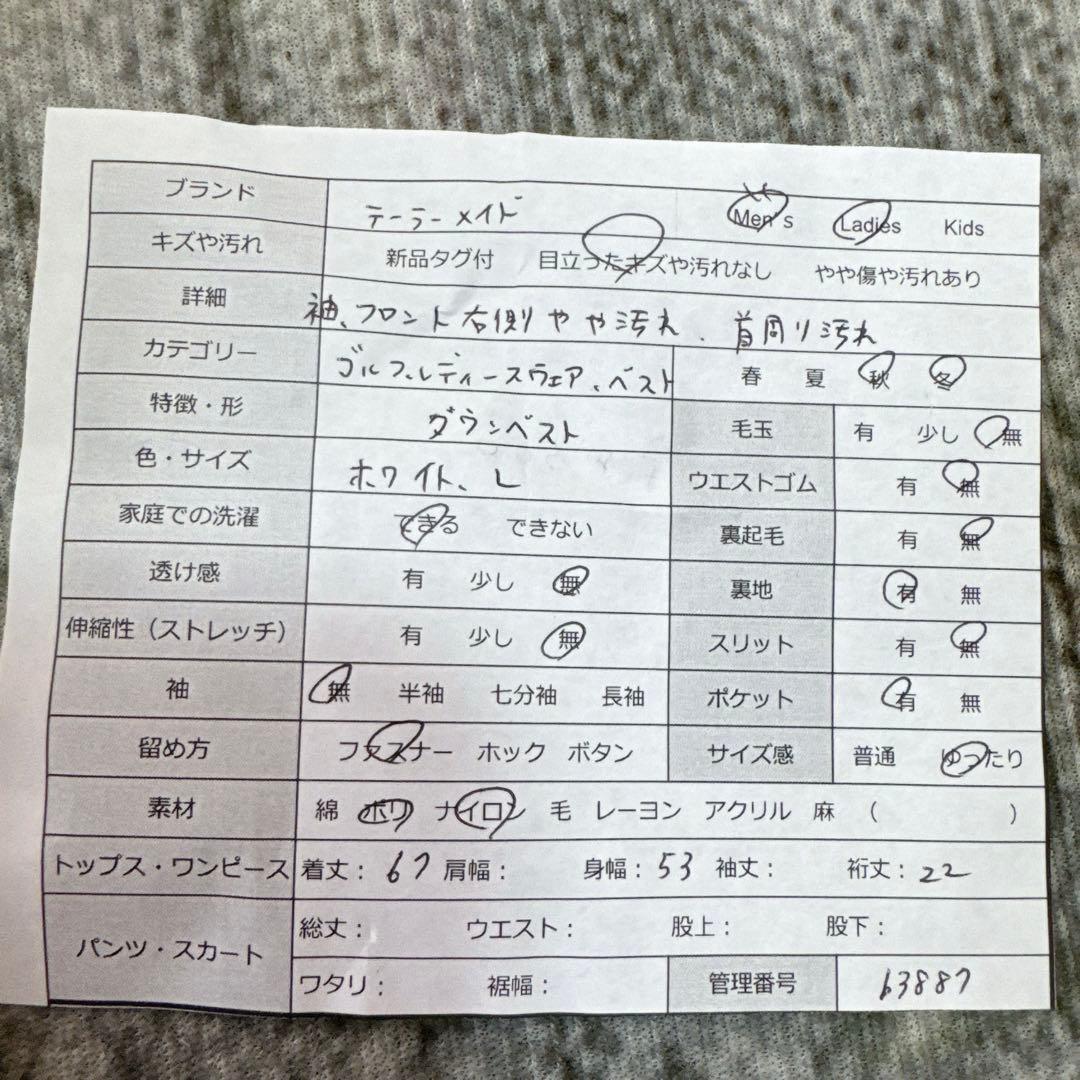 ブランド テーラーメイド Men's Ladies Kids
キズや汚れ 新品タグ付 目立ったキズや汚れなし やや傷や汚れあり
詳細 袖、フロント右側やや汚れ、首周り汚れ
カテゴリー ゴルフ、レディースウェア、ベスト 春 夏 秋 冬
特徴・形 ダウンベスト 毛玉 有 少し 無
色・サイズ ホワイト、L ウエストゴム 有 無
家庭での洗濯 できる できない 裏起毛 有 無
透け感 有 少し 無 裏地 有 無
伸縮性（ストレッチ） 有 少し 無 スリット 有 無
袖 無 半袖 七分袖 長袖 ポケット 有 無
留め方 ファスナー ホック ボタン サイズ感 普通 ゆったり
素材 綿 ポリ ナイロン 毛 レーヨン アクリル 麻 （ ）
トップス・ワンピース 着丈：67 肩幅： 身幅：53 袖丈： 裄丈：22
パンツ・スカート 総丈： ウエスト： 股上： 股下：
ワタリ： 裾幅： 管理番号 63887